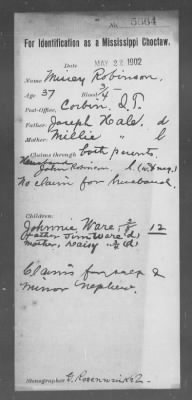 No. 5564
For Identification as a Mississippi Choctaw.
Date MAY 22 1902
Name Missey Robinson,
Age 37 Blood 3/4
Post-Office, Corbin, I.T.
Father, Joseph Hale, d
Mother, Millie " l
Claims through both parents.
John Robinson l.
No claim for husband.
Children:
Johnnie Ware, 12
father Jim Ware (d)
mother, Daisy " (d)
Claims for self &
minor nephew.
Stenographer G. Rosenwinkel.